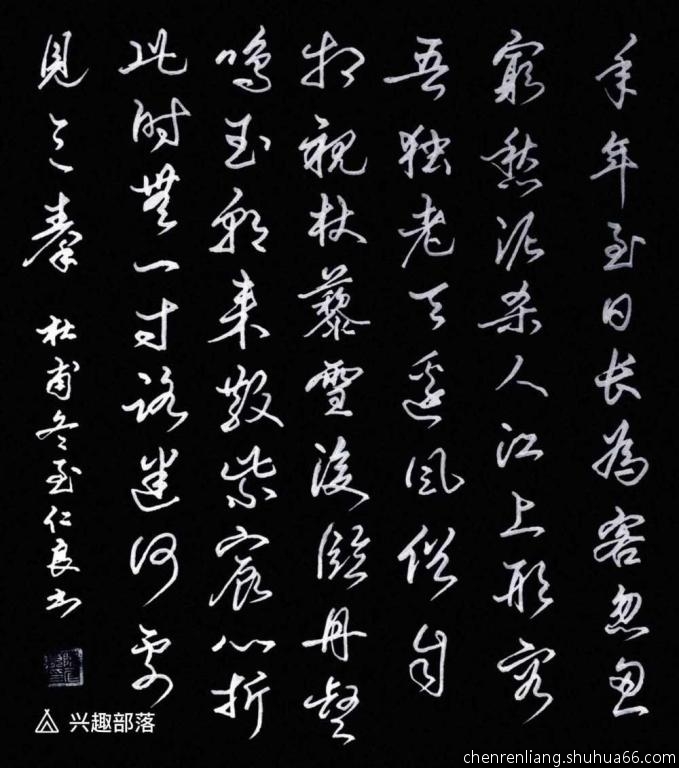 年年至日长為客忽忽
窮愁泥杀人江上形容
吾独老天邊风俗自
相親杖藜雪後臨丹壑
鳴玉朝来散紫宸心折
此时無一寸路迷何處
見三秦
杜甫冬至仁良书
兴趣部落
chenrenliang.shuhua66.com